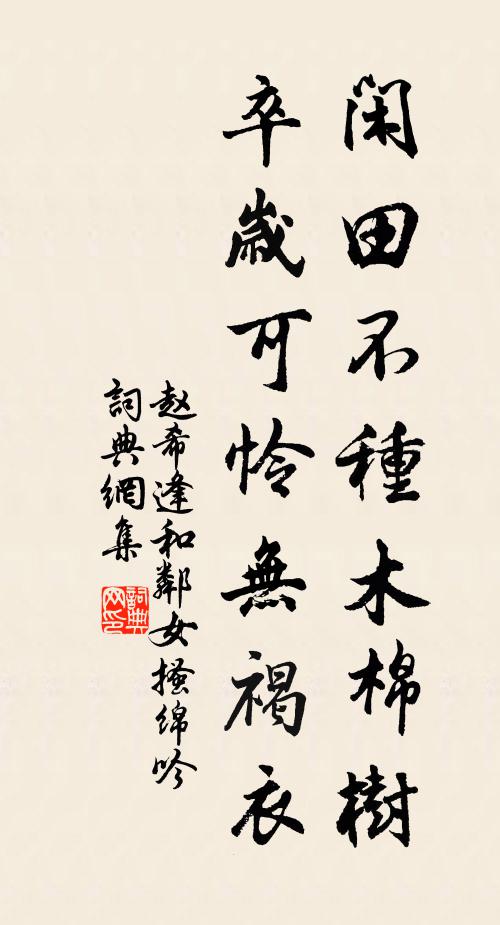 閑田不種木棉樹
卒歲可怜無褐衣
赵希逢和鄰女搔綿吟
詞典網集
詞典网印